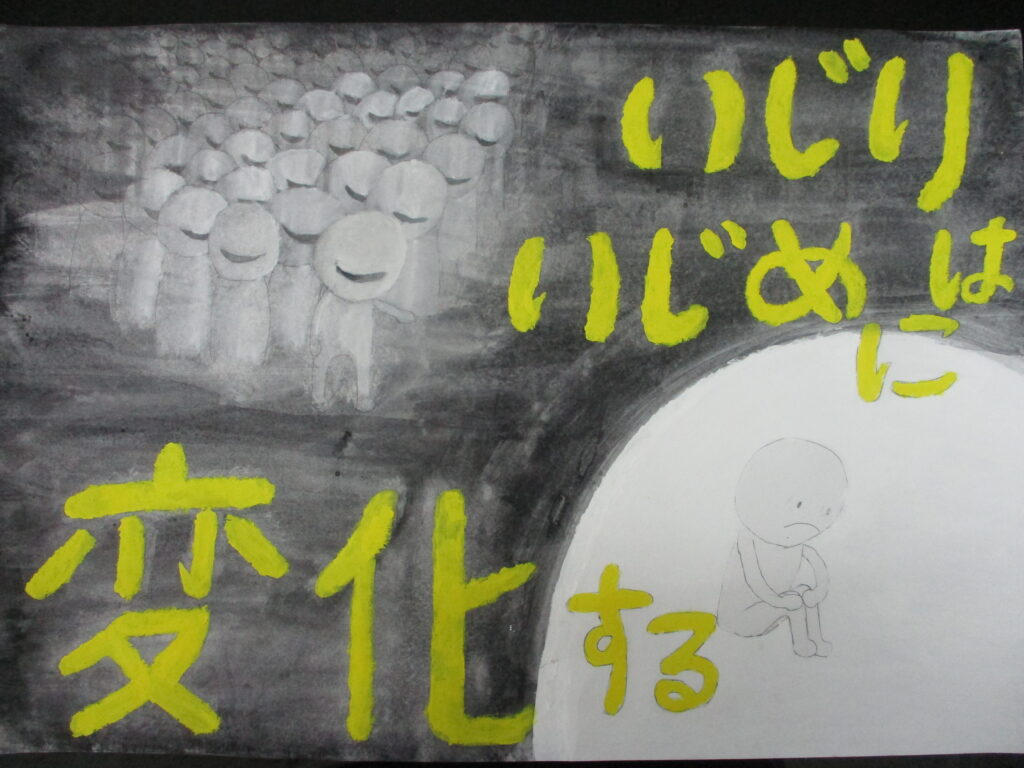 いじりは
いじめに
変化する